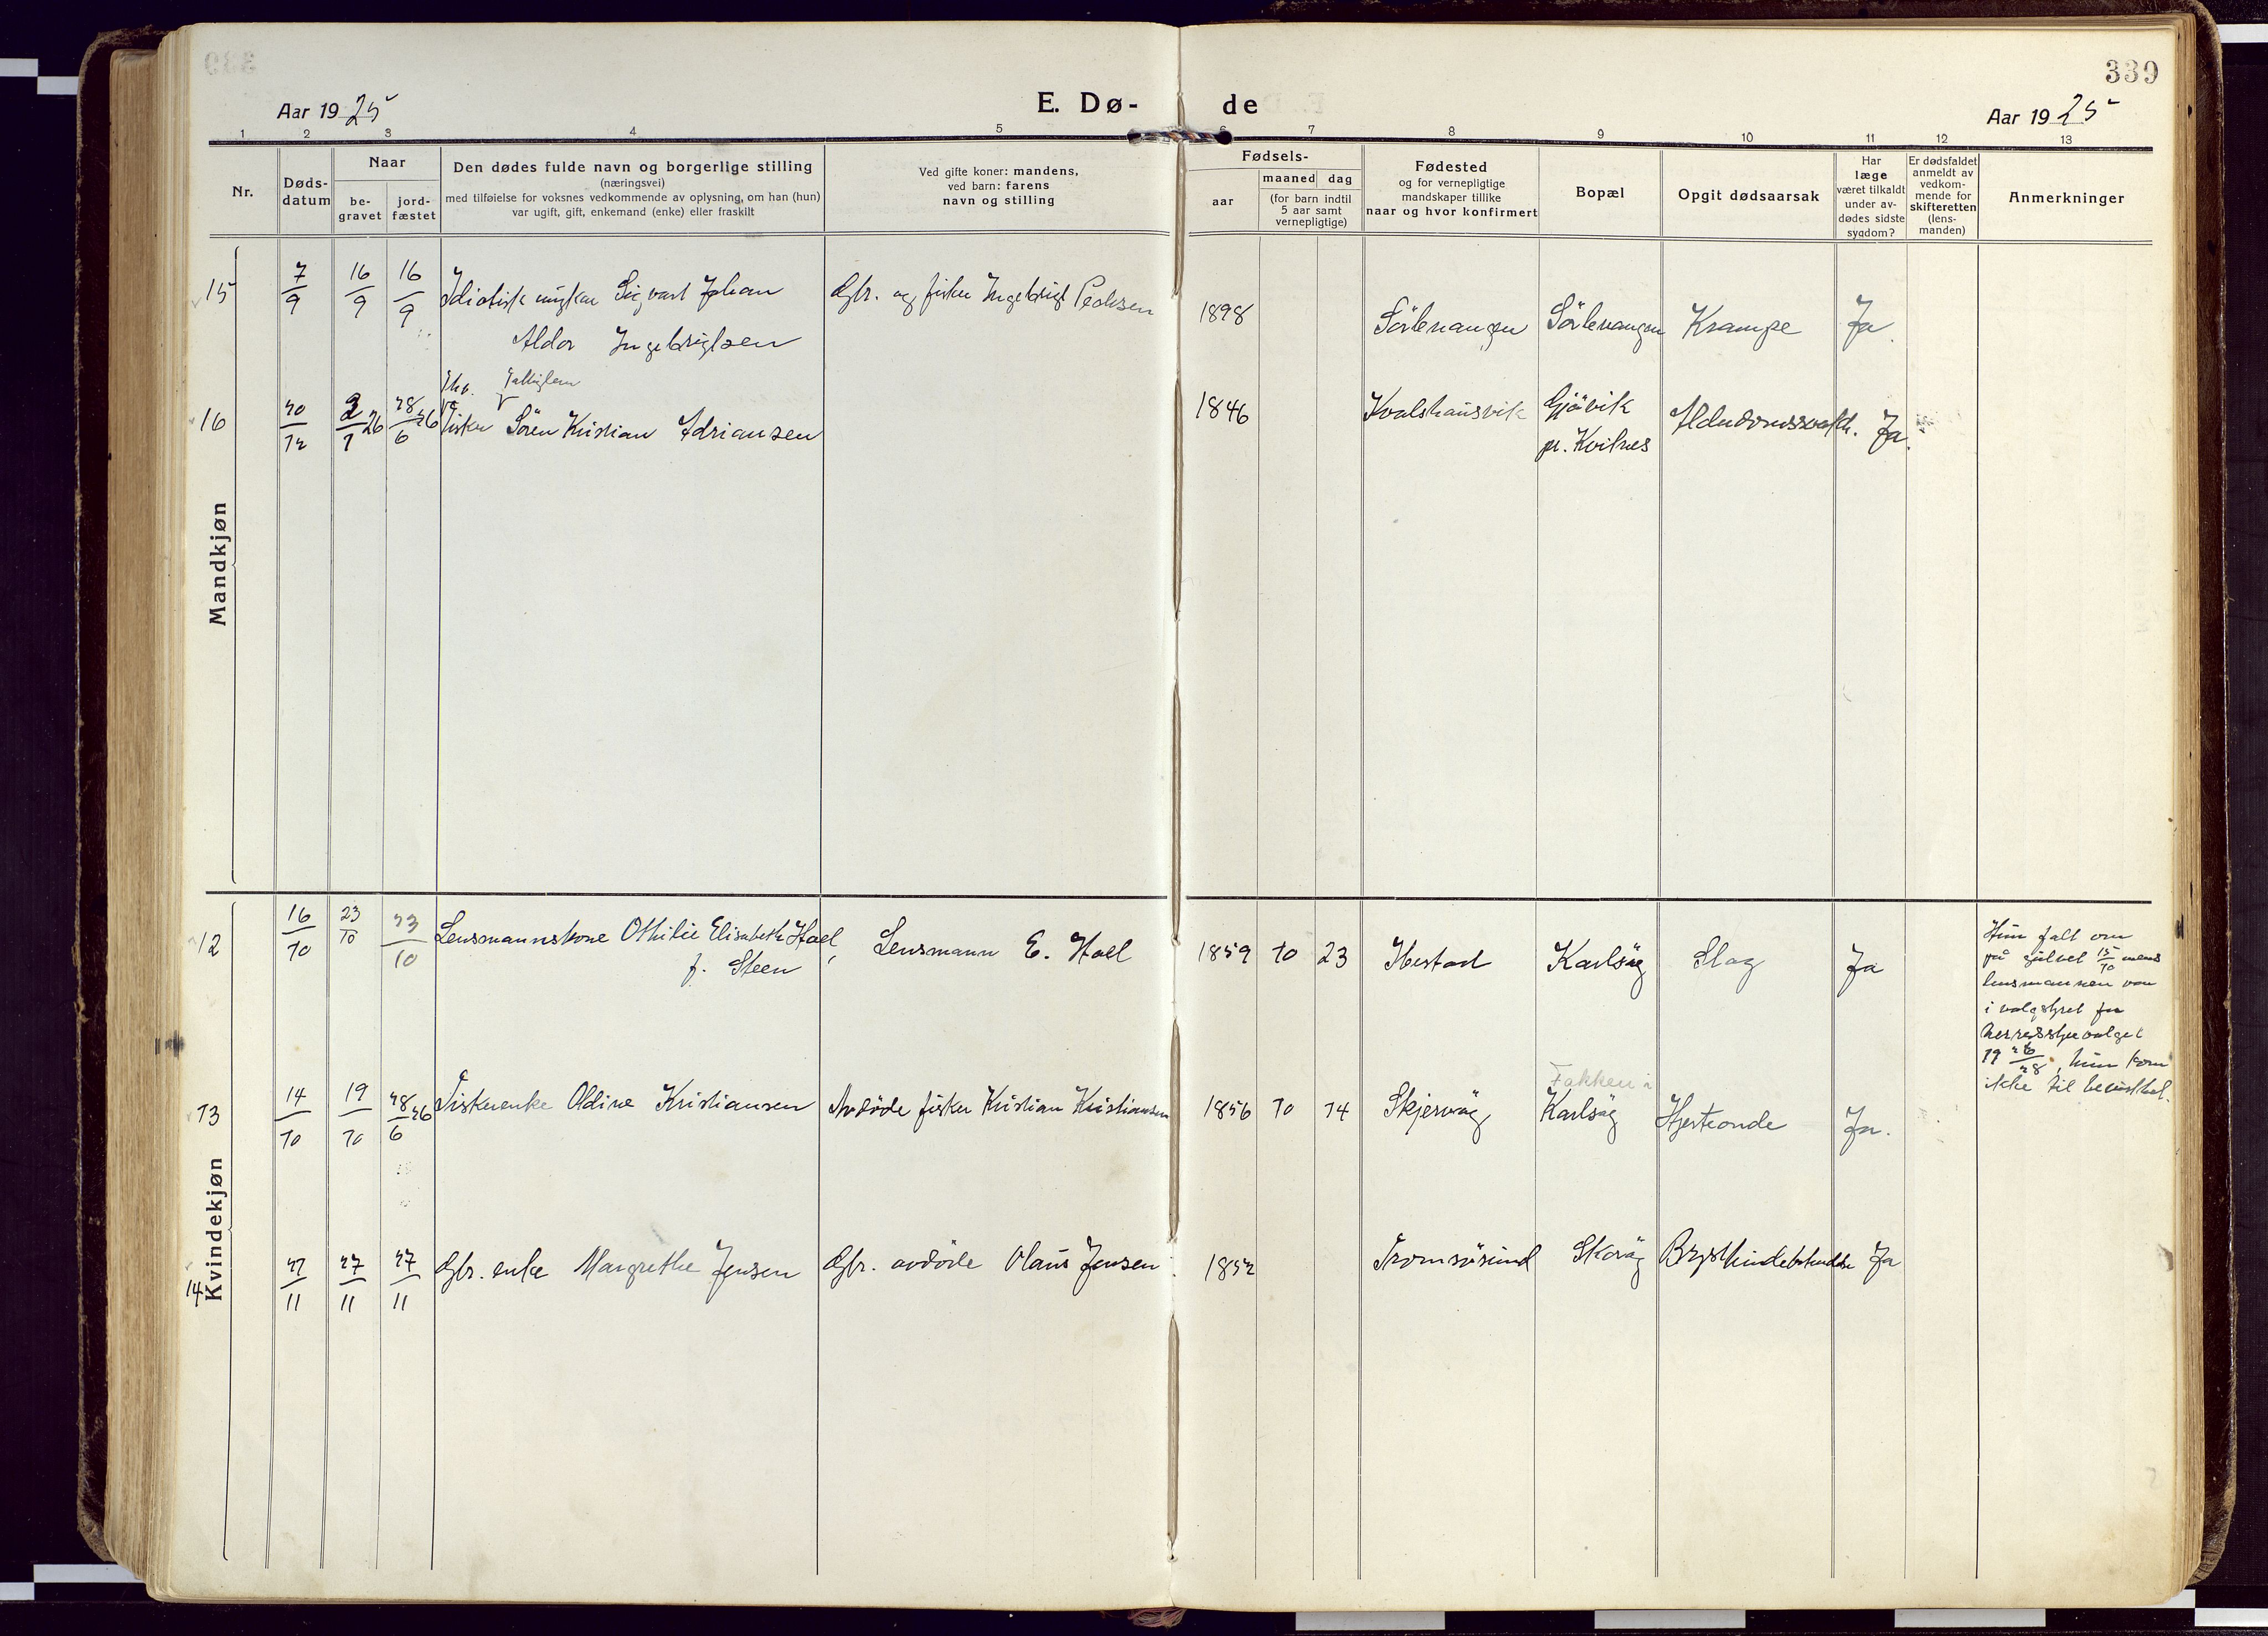 339
Aar 1925
E. Dø-
de
Aar 1925
1 2 3 4 5 6 7 8 9 10 11 12 13
Nr.
Døds-
datum
Naar
be-
gravet
jord-
fæstet
Den dødes fulde navn og borgerlige stilling
(næringsvei)
med tilføielse for voksnes vedkommende av oplysning, om han (hun)
var ugift, gift, enkemand (enke) eller fraskilt
Ved gifte koner: mandens,
ved barn: farens
navn og stilling
Fødsels-
aar
maaned dag
(for barn indtil
5 aar samt
vernepligtige)
Fødested
og for vernepligtige
mandskaper tillike
naar og hvor konfirmert
Bopæl
Opgit dødsaarsak
Har
læge
været tilkaldt
under av-
dødes sidste
sygdom?
Er dødsfaldet
anmeldt av
vedkom-
mende for
skifteretten
(lens-
manden)
Anmerkninger
Mandkjøn
15 7/9 16/9 16/9 Idiotisk ungkar Sigvart Johan
Aldor Ingebrigtsen
Gbr. og fisker Ingebrigt Pedersen 1898 Sörlenangen Sörlenangen Krampe Ja.
16 20/12 2/1 26 28/6 26 Fisker Sören Kristian Adriansen
1846 Kvalshausvik Gjövik
pr. Kvitnes
Alderdomssvakh. Ja.
Kvindekjøn
12 16/10 23/10 23/10 Lensmannskone Othilie Elisabeth Hoel,
f. Steen
Lensmann E. Hoel 1859 10 23 Ibestad Karlsöy Slag Ja
Hun falt om
på gulvet 15/10 mens
lensmannen var
i valgstyret for
herredsstyrevalget
19 26/28, hun kom
ikke til bevissthet.
13 14/10 19/10 28/6 26 Fiskerenke Oldine Kristiansen Avdöde fisker Kristian Kristiansen 1856 10 14 Skjervöy
Fakken i
Karlsöy Hjerteonde Ja.
14 22/11 27/11 27/11 Gbr. enke Margrethe Jensen Gbr. avdöde Olaus Jensen 1852 Tromsösund Skoröy Brysthindebetendelse Ja